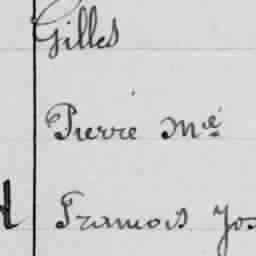 Gilles
Pierre Mie
François Jos